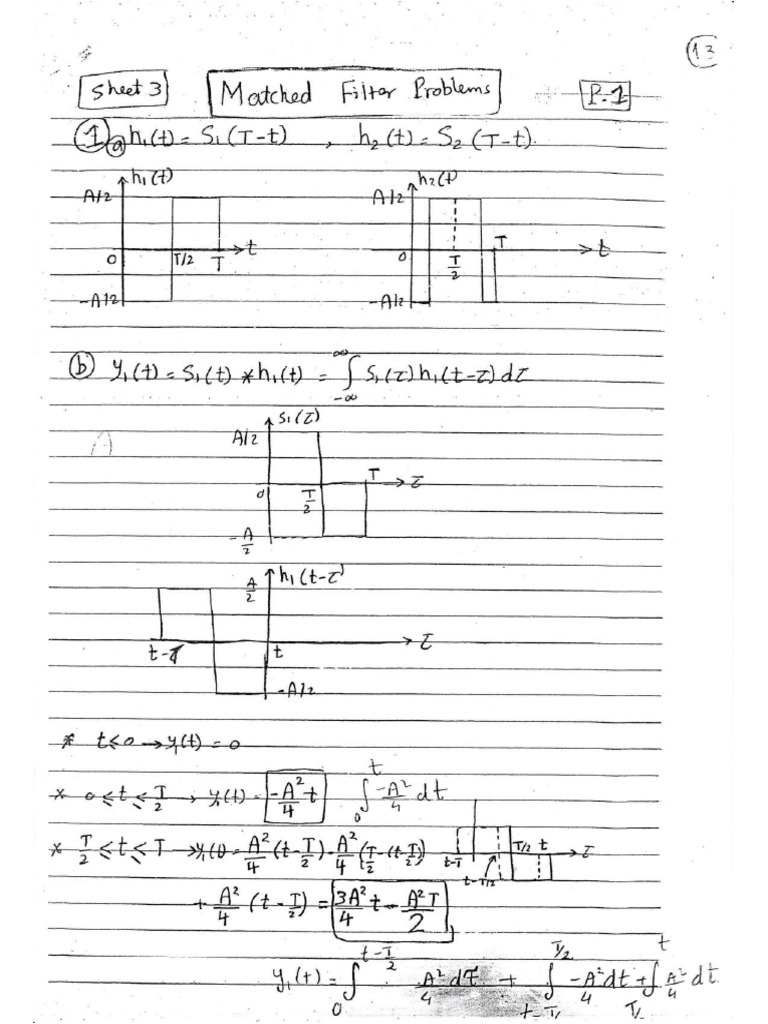 13
Sheet 3 Matched Filter Problems P.1
① ⓐ h₁(t) = S₁(T-t) , h₂(t) = S₂(T-t).
h₁(t) h₂(t)
A/2 A/2
0 T/2 T t 0 T/2 T t
-A/2 -A/2
ⓑ y₁(t) = S₁(t) * h₁(t) = ∫_{-∞}^{∞} S₁(τ) h₁(t-τ) dτ
S₁(τ)
A/2
0 T/2 T τ
-A/2
h₁(t-τ)
A/2
t-T t τ
-A/2
* t≤0 → y₁(t) = 0
* 0≤t≤T/2 → y₁(t) = -A²/4 t ∫_0^t -A²/4 dt
* T/2≤t≤T → y₁(t) = A²/4 (t-T/2) - A²/4 (T/2-(t-T/2)) t-T t-T/2 T/2 t τ
+ A²/4 (t-T/2) = 3A²/4 t - A²T/2
y₁(t) = ∫_0^{t-T/2} A²/4 dτ + ∫_{t-T/}^{T/2} -A²/4 dt + ∫_{T/}^t A²/4 dt